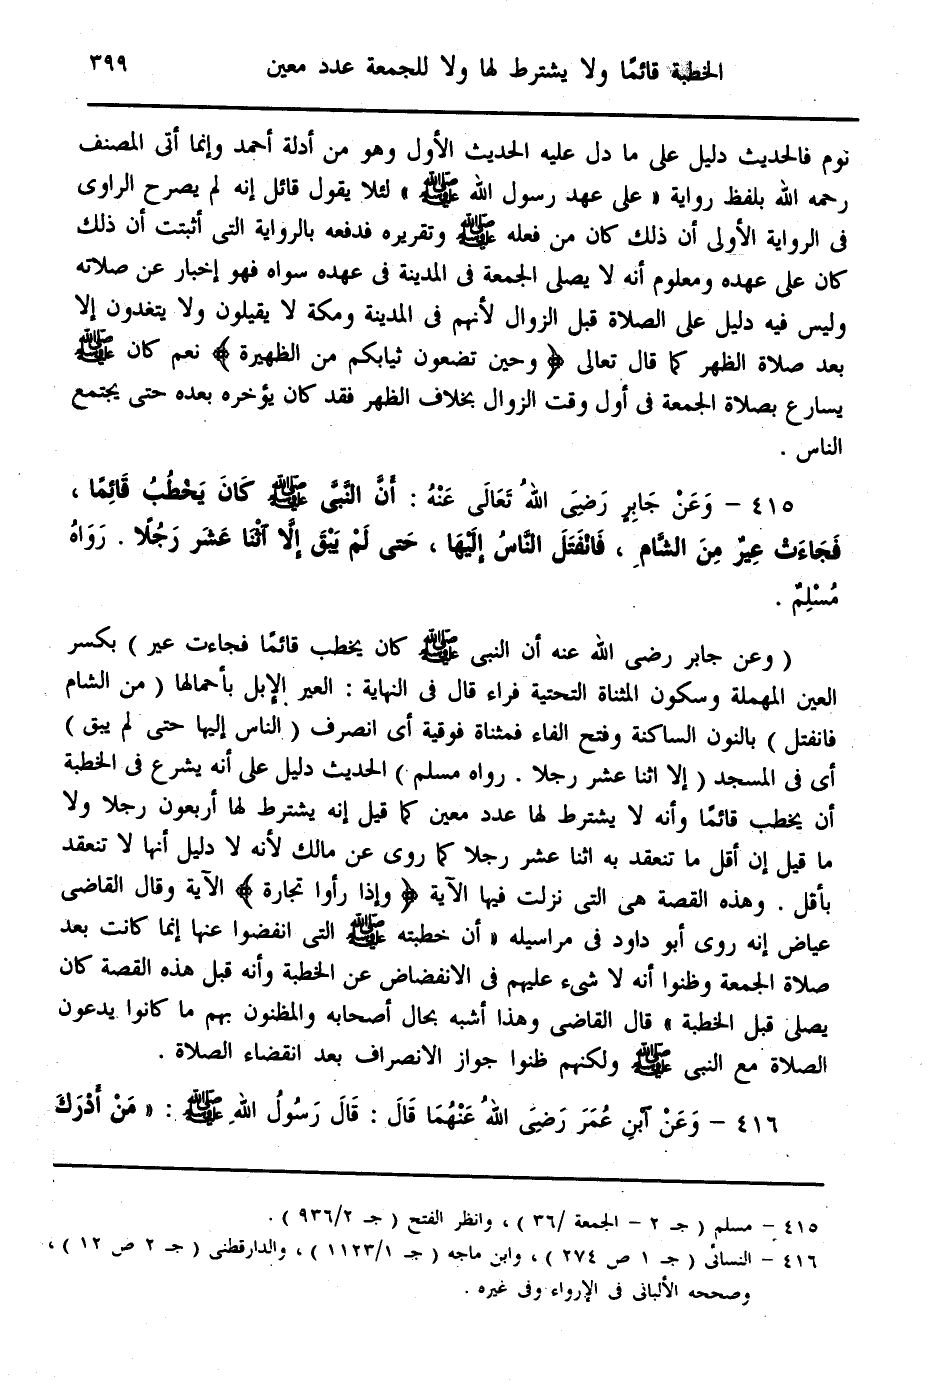 الخطبة قائمًا ولا يشترط لها ولا للجمعة عدد معين ٣٩٩
نوم فالحديث دليل على ما دل عليه الحديث الأول وهو من أدلة أحمد وإنما أتى المصنف
رحمه الله بلفظ رواية « على عهد رسول الله ﷺ » لئلا يقول قائل إنه لم يصرح الراوى
فى الرواية الأولى أن ذلك كان من فعله ﷺ وتقريره فدفعه بالرواية التى أثبتت أن ذلك
كان على عهده ومعلوم أنه لا يصلى الجمعة فى المدينة فى عهده سواه فهو إخبار عن صلاته
وليس فيه دليل على الصلاة قبل الزوال لأنهم فى المدينة ومكة لا يقيلون ولا يتغدون إلا
بعد صلاة الظهر كما قال تعالى ﴿ وحين تضعون ثيابكم من الظهيرة ﴾ نعم كان ﷺ
يسارع بصلاة الجمعة فى أول وقت الزوال بخلاف الظهر فقد كان يؤخره بعده حتى يجتمع
الناس .
٤١٥ – وَعَنْ جَابِرٍ رَضِىَ اللهُ تَعَالَى عَنْهُ : أَنَّ النَّبِىَّ ﷺ كَانَ يَخْطُبُ قَائِمًا ،
فَجَاءَتْ عِيرٌ مِنَ الشَّامِ ، فَانْفَتَلَ النَّاسُ إِلَيْهَا ، حَتى لَمْ يَبْقَ إِلَّا آثْنَا عَشَر رَجُلًا . رَوَاهُ
مُسْلِمٌ .
( وعن جابر رضى الله عنه أن النبى ﷺ كان يخطب قائمًا فجاءت عير ) بكسر
العين المهملة وسكون المثناة التحتية فراء قال فى النهاية : العير الإبل بأحمالها ( من الشام
فانفتل ) بالنون الساكنة وفتح الفاء فمثناة فوقية أى انصرف ( الناس إليها حتى لم يبق )
أى فى المسجد ( إلا اثنا عشر رجلا . رواه مسلم ) الحديث دليل على أنه يشرع فى الخطبة
أن يخطب قائمًا وأنه لا يشترط لها عدد معين كما قيل إنه يشترط لها أربعون رجلا ولا
ما قيل إن أقل ما تنعقد به اثنا عشر رجلا كما روى عن مالك لأنه لا دليل أنها لا تنعقد
بأقل . وهذه القصة هى التى نزلت فيها الآية ﴿ وإذا رأوا تجارة ﴾ الآية وقال القاضى
عياض إنه روى أبو داود فى مراسيله « أن خطبته ﷺ التى انفضوا عنها إنما كانت بعد
صلاة الجمعة وظنوا أنه لا شىء عليهم فى الانفضاض عن الخطبة وأنه قبل هذه القصة كان
يصلى قبل الخطبة » قال القاضى وهذا أشبه بحال أصحابه والمظنون بهم ما كانوا يدعون
الصلاة مع النبى ﷺ ولكنهم ظنوا جواز الانصراف بعد انقضاء الصلاة .
٤١٦ – وَعَنْ آبْنِ عُمَرَ رَضِىَ اللهُ عَنْهُمَا قَالَ : قَالَ رَسُولُ اللهِ ﷺ : « مَنْ أَدْرَكَ
٤١٥ – مسلم ( جـ ٢ – الجمعة /٣٦ ) ، وانظر الفتح ( جـ ٩٣٦/٢ ) .
٤١٦ – النسائى ( جـ ١ ص ٢٧٤ ) ، وابن ماجه ( جـ ١١٢٣/١ ) ، والدارقطنى ( جـ ٢ ص ١٢ ) ،
وصححه الألبانى فى الإرواء وفى غيره .